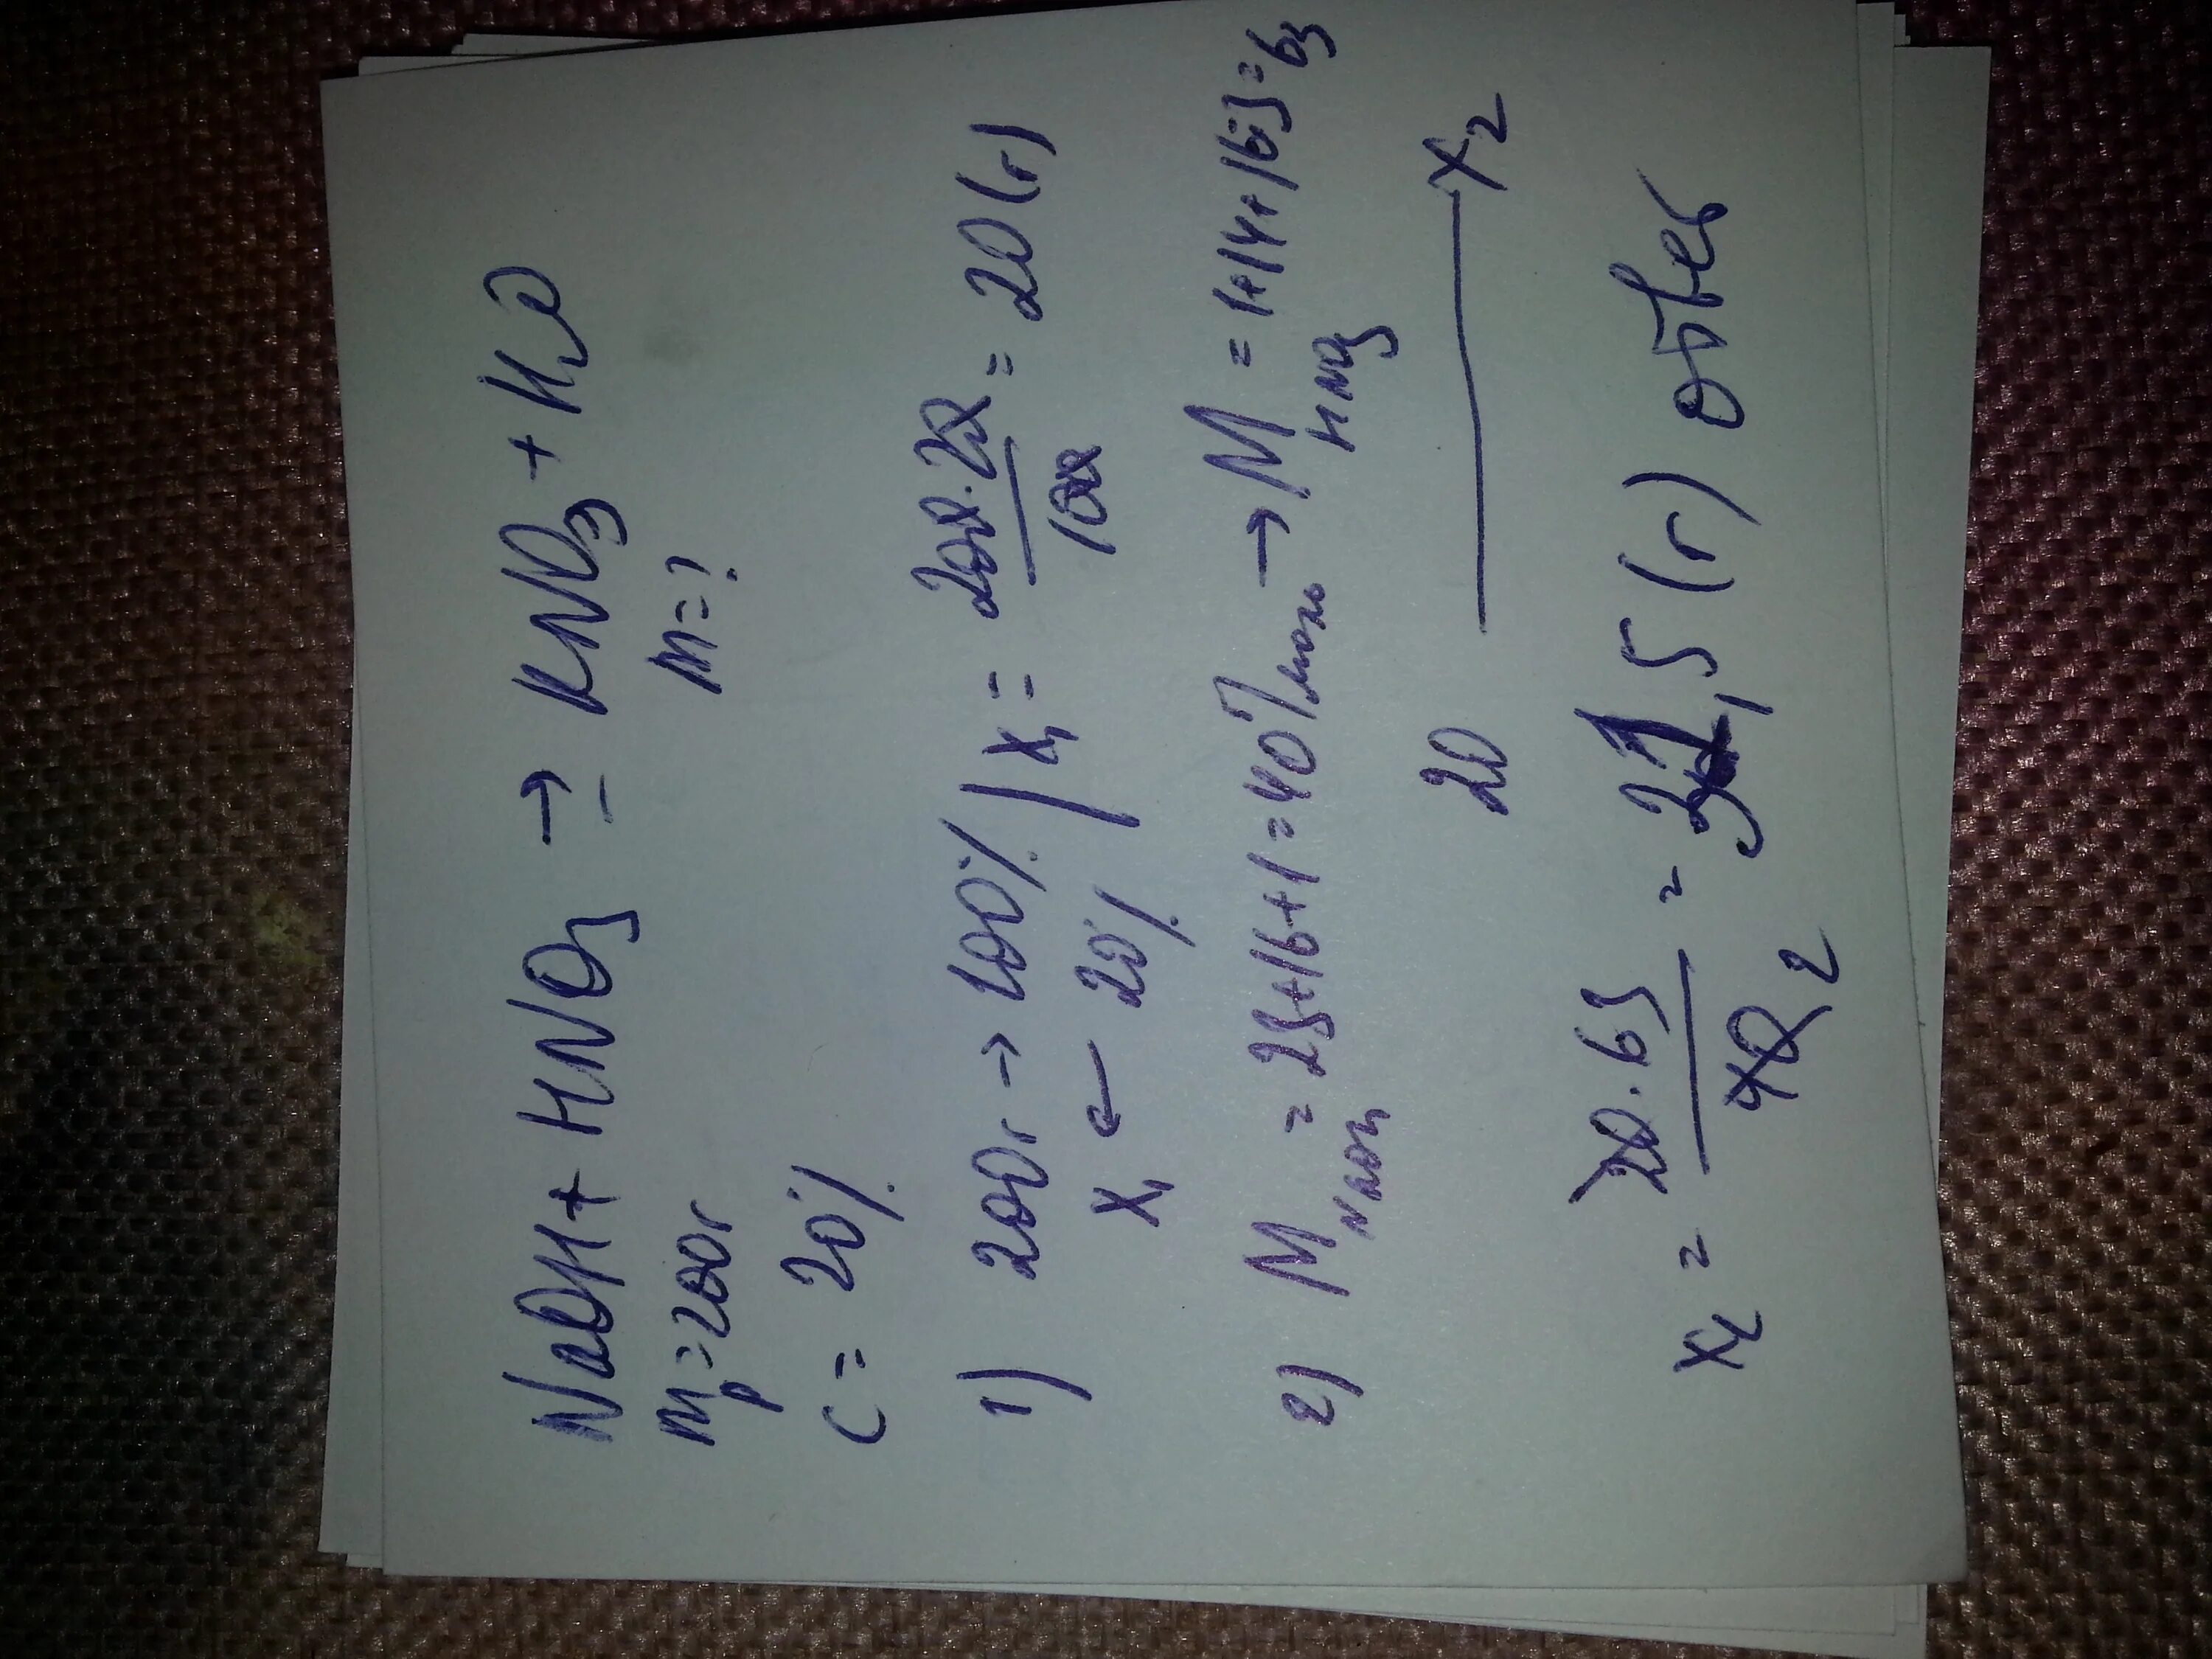 NaOH + HNO₃ → KNO₃ + H₂O
mр = 200г m = ?
C = 20%
1) 200г → 100% | x₁ = 200·20 / 100 = 20 (г)
x₁ ← 20%
2) M NaOH = 23+16+1 = 40 г/моль → M HNO₃ = 1+14+16·3 = 63
20 — x₂
x₂ = 20·63 / 40 2 = 31,5 (г) ответ